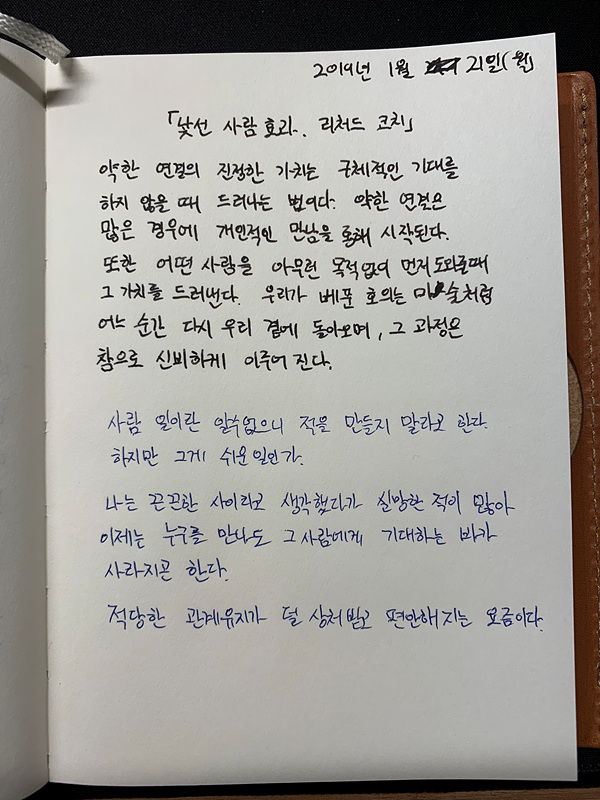 2019년 1월 21일(월)
「낯선 사람 효과. 리처드 코치」
약한 연결의 진정한 가치는 구체적인 기대를
하지 않을 때 드러나는 법이다. 약한 연결은
많은 경우에 개인적인 만남을 통해 시작된다.
또한 어떤 사람을 아무런 목적없이 먼저 도와줄때
그 가치를 드러낸다. 우리가 베푼 호의는 마술처럼
어느 순간 다시 우리 곁에 돌아오며, 그 과정은
참으로 신비하게 이주어 진다.
사람 일이란 알수없으니 적을 만들지 말라고 한다.
하지만 그게 쉬운일인가.
나는 끈끈한 사이라고 생각했다가 실망한 적이 많아
이제는 누구를 만나도 그사람에게 기대하는 바가
사라지곤 한다.
적당한 관계유지가 덜 상처받고 편안해지는 요즘이다.